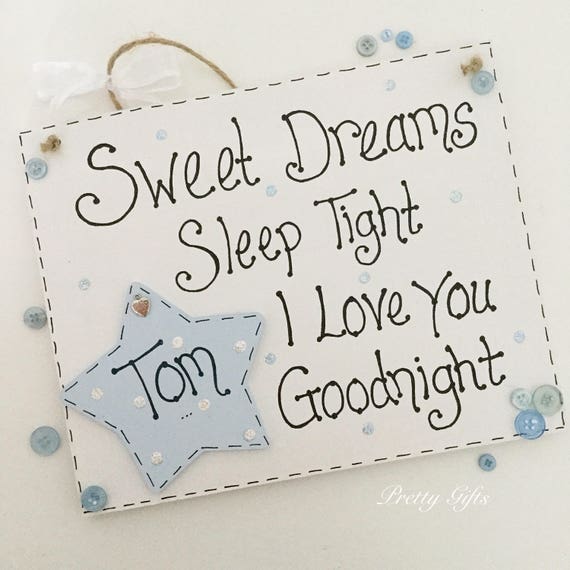 Sweet Dreams
Sleep Tight
I Love You
Goodnight
Tom
...
Pretty Gifts